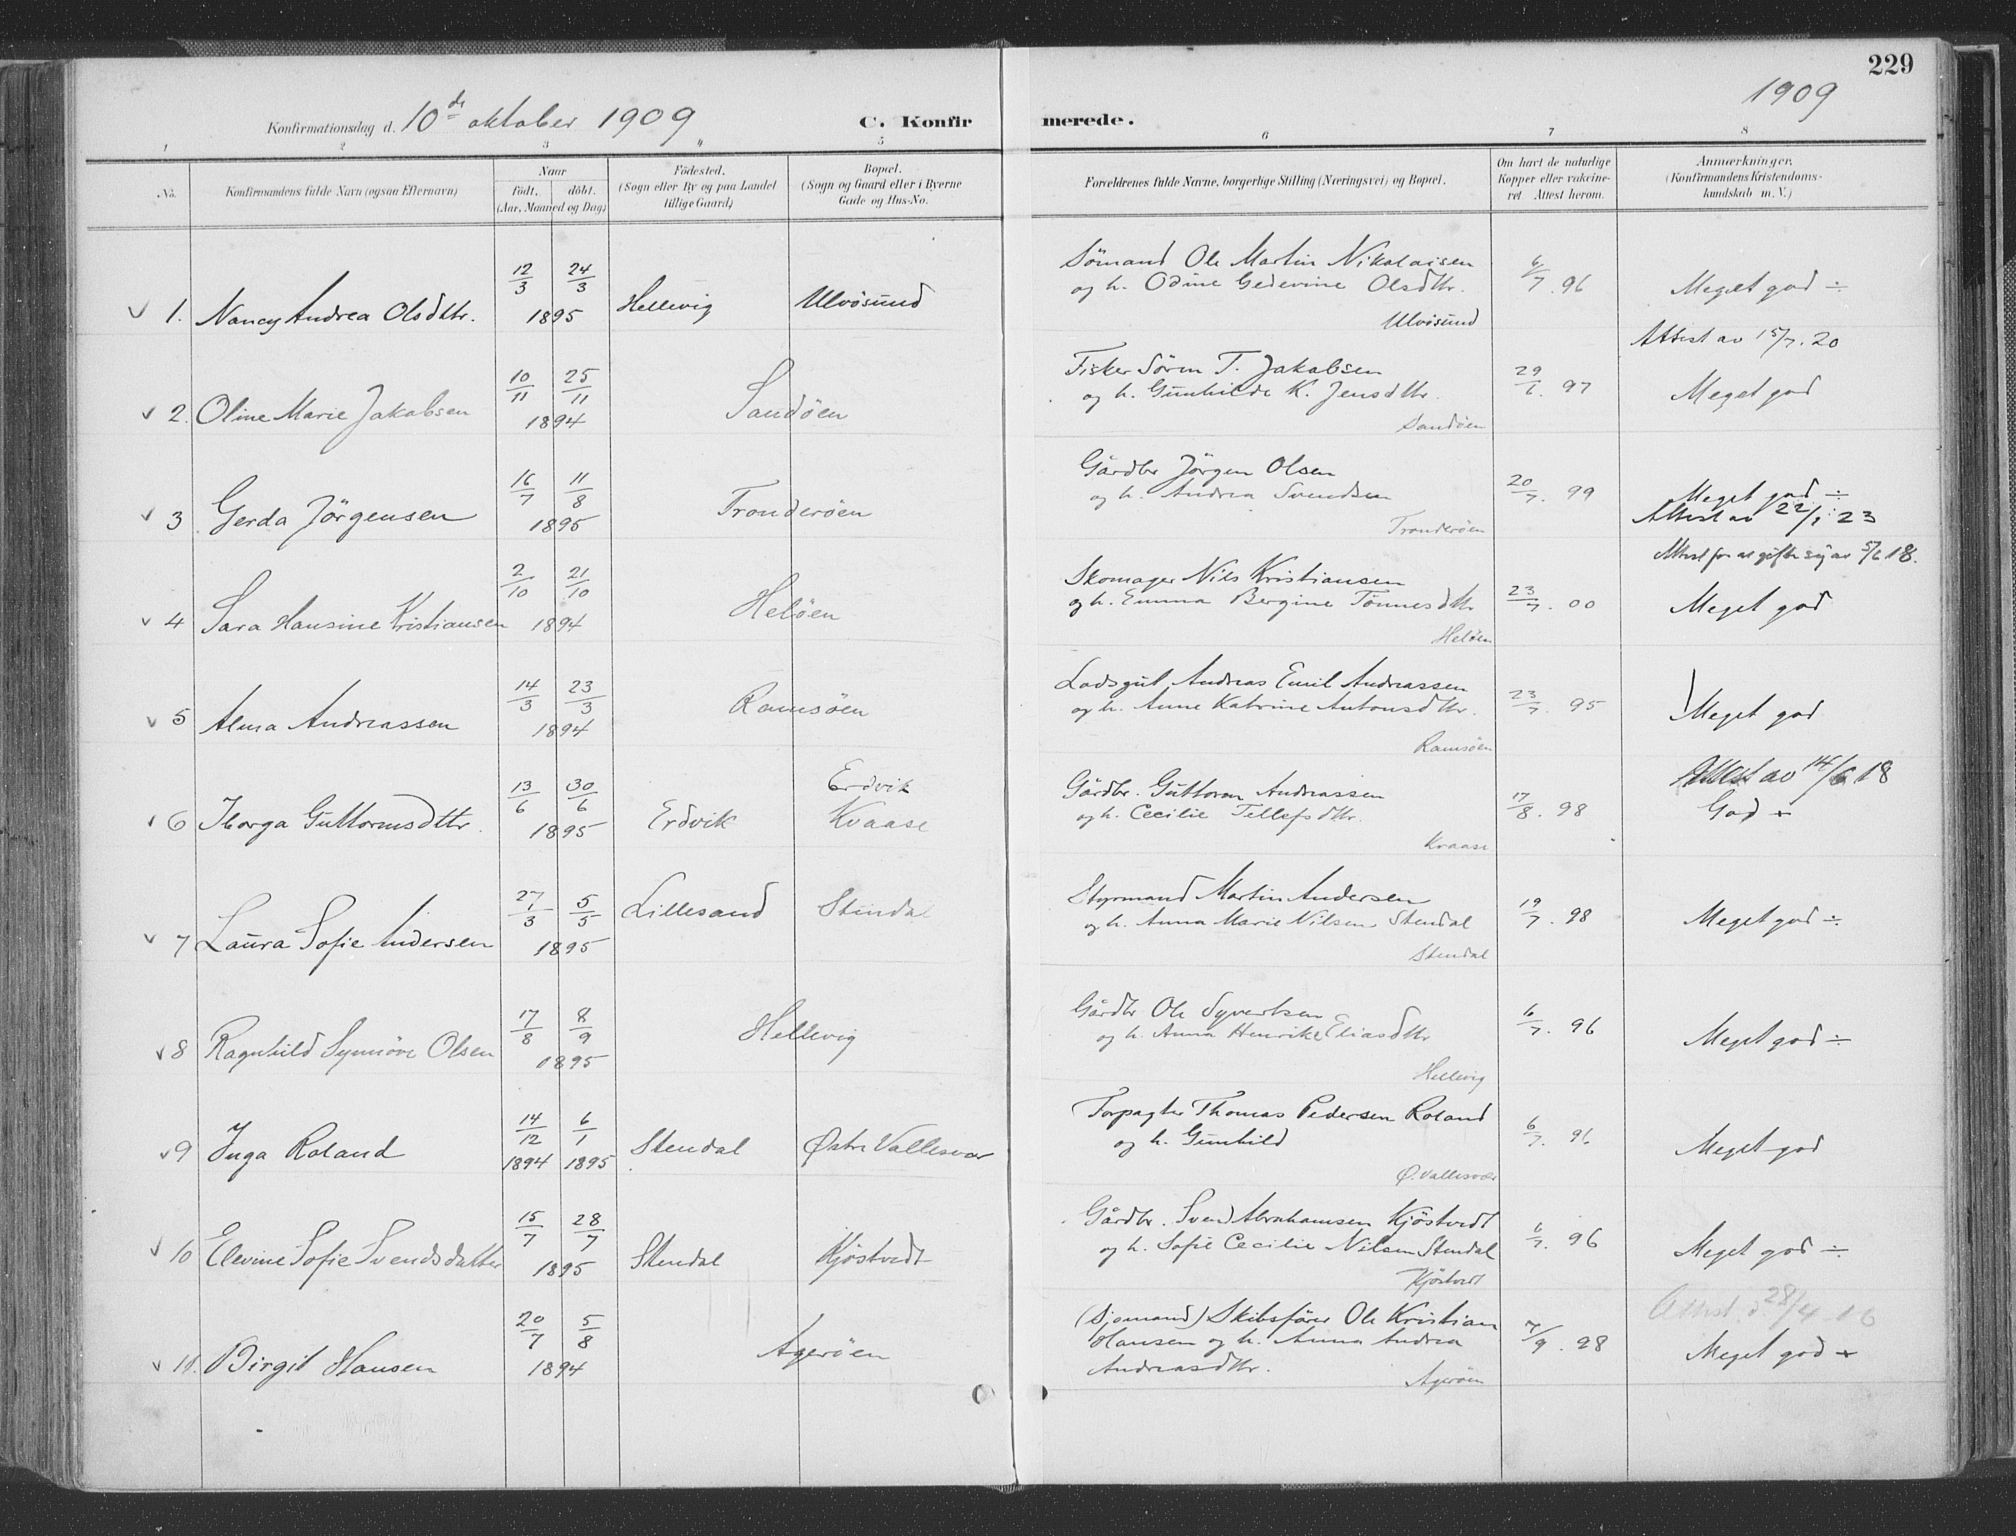 229
1909
Konfirmationsdag d. 10de oktober 1909
C. Konfirmerede.
1 2 3 4 5 6 7 8
No.
Konfirmandens fulde Navn (ogsaa Efternavn)
Naar
födt. döbt.
(Aar, Maaned og Dag)
Födested.
(Sogn eller By og paa Landet
tillige Gaard)
Bopæl.
(Sogn og Gaard eller i Byerne
Gade og Hus-No.
Forældrenes fulde Navne, borgerlige Stilling (Næringsvei) og Bopæl.
Om havt de naturlige
Kopper eller vakcine-
ret. Attest herom.
Anmærkninger.
(Konfirmandens Kristendoms-
kundskab m. V.)
Sömand Ole Martin Nikolaisen
12/3 24/3 og h. Odine Gedevine Olsdttr. 6/7. 96 Meget god ÷
v 1. Nancy Andrea Olsdttr. 1895 Hellevig Ulvösund Ulvösund
Attest av 15/7. 20
10/11 25/11 Fisker Sören T. Jakobsen
v 2. Oline Marie Jakobsen 1894 Sandöen og h. Gunhilde K. Jensdttr. 29/6. 97 Meget god
Sandöen
16/7 11/8 Gårdbr Jörgen Olsen
og h. Andrea Svendsen 20/7. 99 Meget god ÷
v 3 Gerda Jörgensen 1895 Tronderöen Tronderöen Attest av 22/1 23
Attest for at gifte sig av 5/6 18.
2/10 21/10 Skomager Nils Kristiansen
v 4 Sara Hansine Kristiansen 1894 Helöen og h. Emma Bergine Tönnesdttr 23/7. 00 Meget god
Helöen
14/3 23/3 Lodsgut Andreas Emil Andreassen
v 5 Alma Andreassen 1894 Ramsöen og h. Anne Katrine Antonsdttr. 23/7. 95 Meget god
Ramsöen
Attest av 14/6 18
13/6 30/6 Erdvik Gårdbr. Guttorm Andreassen
v 6 Thorga Guttormsdttr. 1895 Erdvik Kvaase og h. Cecilie Tellefsdttr. 17/8. 98 God +
Kvaase
27/3 5/5 Lillesand Stendal Styrmand Martin Andersen
v 7 Laura Sofie Andersen 1895 og h. Anna Marie Nilsen Stendal 19/7. 98 Meget god ÷
Stendal
17/8 8/9 Hellevig Gårdbr Ole Syvertsen
v 8 Ragnhild Synnöve Olsen 1895 og h. Anna Henrikke Eliasdttr 6/7. 96 Meget god ÷
Hellevig
14/12 6/1 Forpagter Thomas Pedersen Roland
v 9 Inga Roland 1894 1895 Stendal Østre Vallesvær og h. Gunhild 6/7. 96 Meget god
Ø. Vallesvær
15/7 28/7 Gårdbr. Svend Abrahamsen Kjöstvedt
v 10 Elevine Sofie Svendsdatter 1895 Stendal Kjöstvedt og h. Sofie Cecilie Nilsen Stendal 6/7. 96 Meget god ÷
Kjöstvedt
Attest 28/4 16
20/7 5/8 (Sjomand) Skibsförer Ole Kristian
v 11. Birgit Hansen 1894 Ageröen Hansen og h. Anna Andrea 7/9. 98 Meget god +
Andreasdttr.
Ageröen